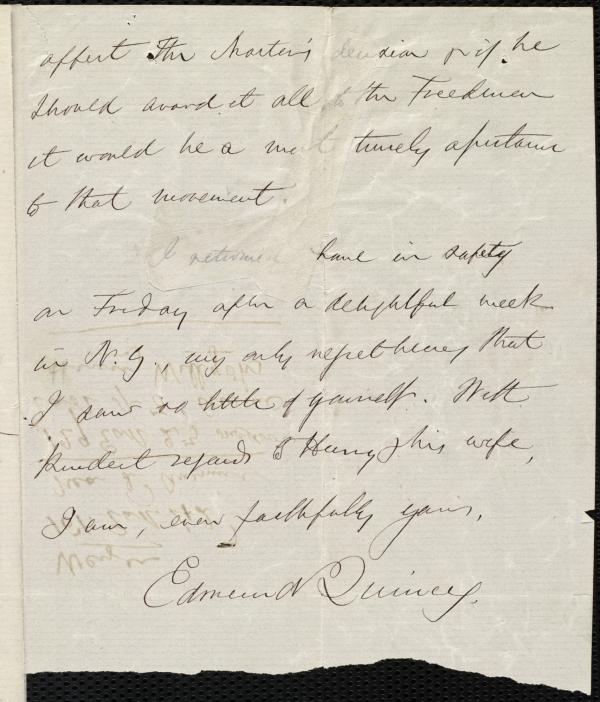 affect the Master's decision or if he
should award it all to the Freedmen
it would be a most timely assistance
to that movement.
I returned home in safety
on Friday after a delightful week
in N.Y., my only regret being that
I saw so little of yourself. With
kindest regards to Henry & his wife,
I am, ever faithfully yours,
Edmund Quincy.